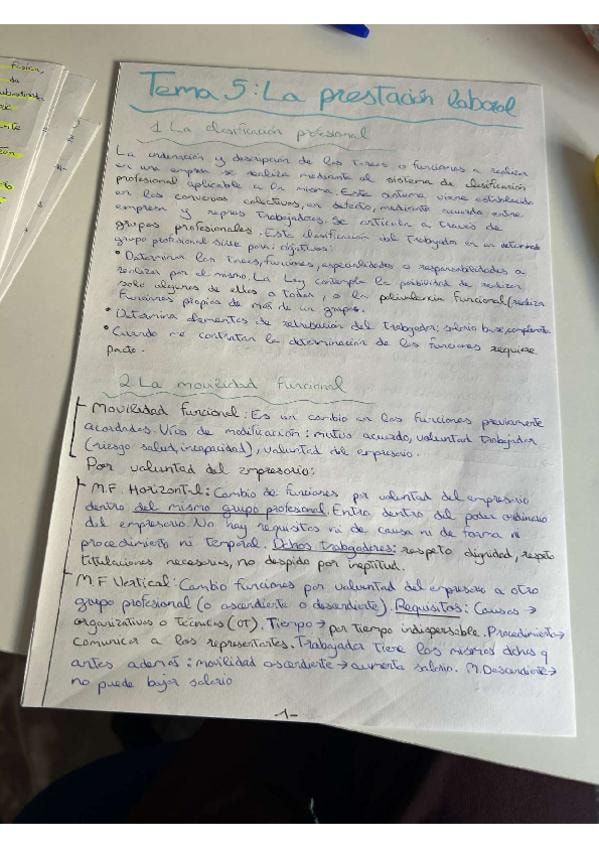 Tema 5: La prestación laboral
1. La clasificación profesional
La ordenación y descripción de las tareas o funciones a realizar
en una empresa se realiza mediante el sistema de clasificación
profesional aplicable a la misma. Este sistema viene establecido
en los convenios colectivos, en defecto, mediante acuerdo entre
empresa y repres trabajadores. Se articula a través de
grupos profesionales. Esta clasificación del trabajador en un determinado
grupo profesional sirve para: objetivos:
• Determinar las tareas, funciones, especialidades o responsabilidades a
realizar por el mismo. La Ley contempla la posibilidad de realizar
solo algunas de ellas o todas, o la polivalencia funcional (realiza
funciones propias de más de un grupo).
• Determina elementos de retribución del trabajador: salario base, complemento.
• Cuando me contratan la determinación de las funciones requiere
pacto.
2. La movilidad funcional
Movilidad funcional: Es un cambio en las funciones previamente
acordadas. Vías de modificación: mutuo acuerdo, voluntad trabajador
(riesgo salud, incapacidad), voluntad del empresario.
Por voluntad del empresario:
M.F. Horizontal: Cambio de funciones por voluntad del empresario
dentro del mismo grupo profesional. Entra dentro del poder ordinario
del empresario. No hay requisitos ni de causa ni de forma ni
procedimiento ni temporal. Dchos trabajadores: respeto dignidad, respeto
titulaciones necesarias, no despido por ineptitud.
M.F Vertical: Cambio funciones por voluntad del empresario a otro
grupo profesional (o ascendiente o descendiente). Requisitos: Causas →
organizativas o Técnicas (OT). Tiempo → por tiempo indispensable. Procedimiento →
comunicar a los representantes. Trabajador tiene los mismos dchos q
antes además: movilidad ascendiente → aumenta salario. M. Descendiente →
no puede bajar salario
-1-